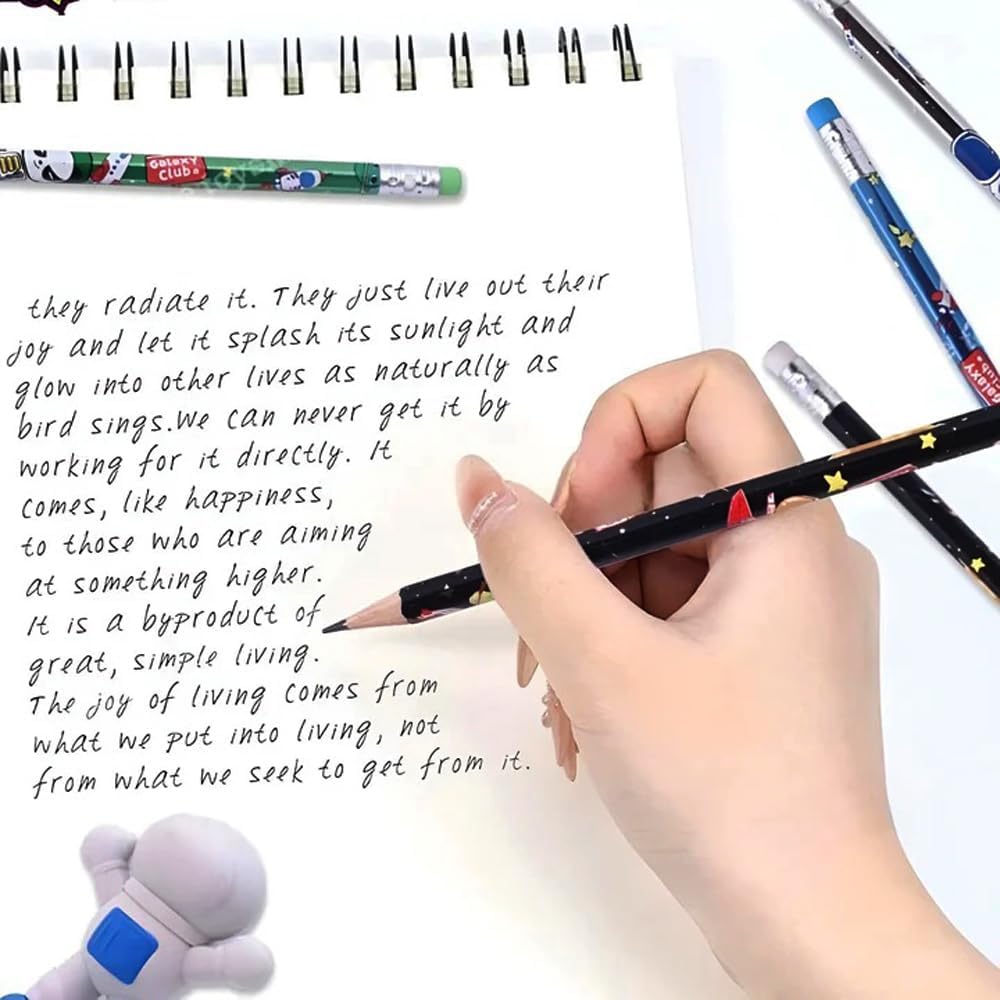 GALAXY
CLUB
they radiate it. They just live out their
joy and let it splash its sunlight and
glow into other lives as naturally as
bird sings.We can never get it by
working for it directly. It
comes, like happiness,
to those who are aiming
at something higher.
It is a byproduct of
great, simple living.
The joy of living comes from
what we put into living, not
from what we seek to get from it.
GALAXY
CLUB